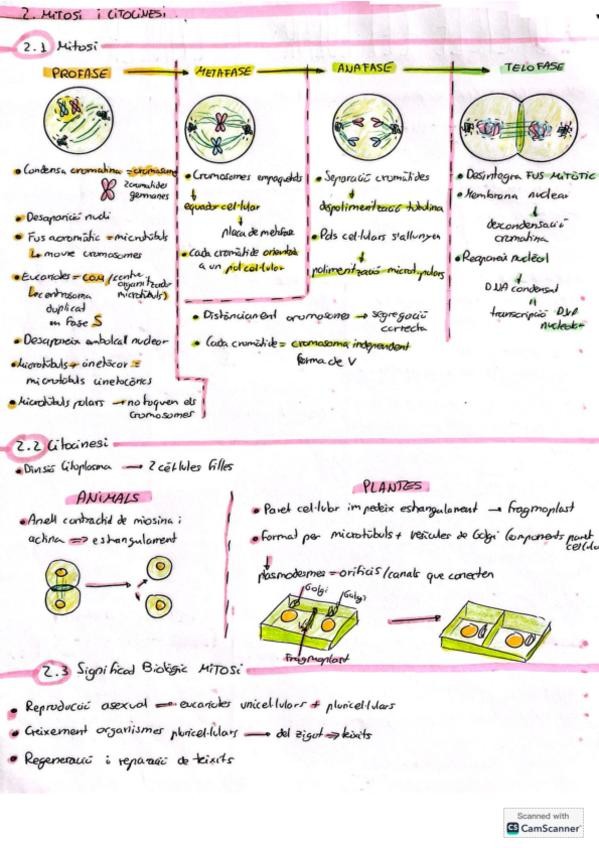 2. MITOSI i CITOCINESI
2.1 Mitosi
PROFASE
METAFASE
ANAFASE
TELOFASE
• Condensa cromatina = cromosome
2 cromàtides
germanes
• Desaparició nucli
• Fus acromàtic = microtúbuls
↳ moure cromosomes
• Eucariotes = COM / centre
organitzador
microtúbuls)
↳ centrosoma
duplicat
en Fase S
• Desapareix embolcall nuclear
• Microtúbuls + cinetocor =
microtúbuls cinetocòrics
• Microtúbuls polars → no toquen els
cromosomes
• Cromosomes empaquetats
↓
equador cel·lular
↓
placa de metafase
• Cada cromàtide orientada
a un pol cel·lular
• Separació cromàtides
↓
despolimerització tubulina
• Pols cel·lulars s'allunyen
↓
polimerització microt. polars
• Distanciament cromosomes → segregació
correcta
• Cada cromàtide = cromosoma independent
forma de V
• Desintegra FUS MITÒTIC
• Membrana nuclear
↓
descondensació
cromatina
• Reapareix nuclèol
↓
DNA condensat
↓
transcripció DNA
nuclear
2.2 Citocinesi
• Divisió Citoplasma → 2 cèl·lules filles
ANIMALS
• Anell contràctil de miosina i
actina ⇒ estrangulament
PLANTES
• Paret cel·lular impedeix estrangulament → fragmoplast
• Format per microtúbuls + vesícules de Golgi (components paret
cel·lular
↓
plasmodesmes = orificis/canals que conecten
Golgi
Golgi
Fragmoplast
2.3 Significat Biològic MITOSI
• Reproducció asexual → eucariotes unicel·lulars + pluricel·lulars
• Creixement organismes pluricel·lulars → del zigot ⇒ teixits
• Regeneració i reparació de teixits
Scanned with
CS CamScanner